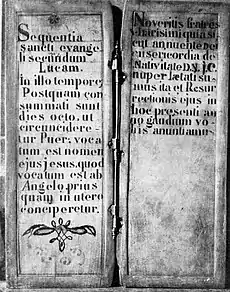 Sequentia
sancti evange
li secundum
Lucam.
in illo tempore
Postquam con
summati sunt
dies octo, ut
circuncidere-
tur Puer; voca
tum est nomen
ejus jesus, quod
vocatum est ab
Angelo, prius
quam in utero
conciperetur.
Noveritis fratres
charissimi quia si
cut annuente Dei
misericordia de
Nativitate D.N.J.C.
nuper Lætati su
mus ita et Resur
rectionis ejus in
hoc presenti an
no gaudium vo-
bis anuntiamus